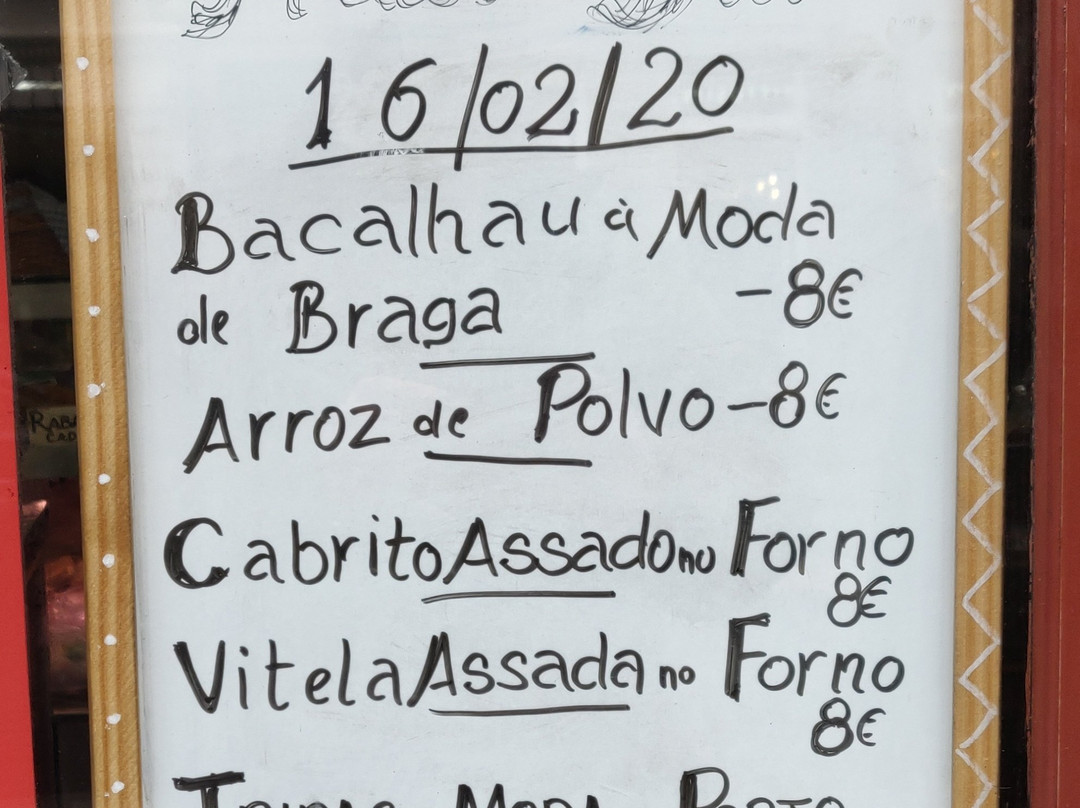 16/02/20
Bacalhau à Moda
de Braga -8€
Arroz de Polvo -8€
Cabrito Assado no Forno
8€
Vitela Assada no Forno
8€